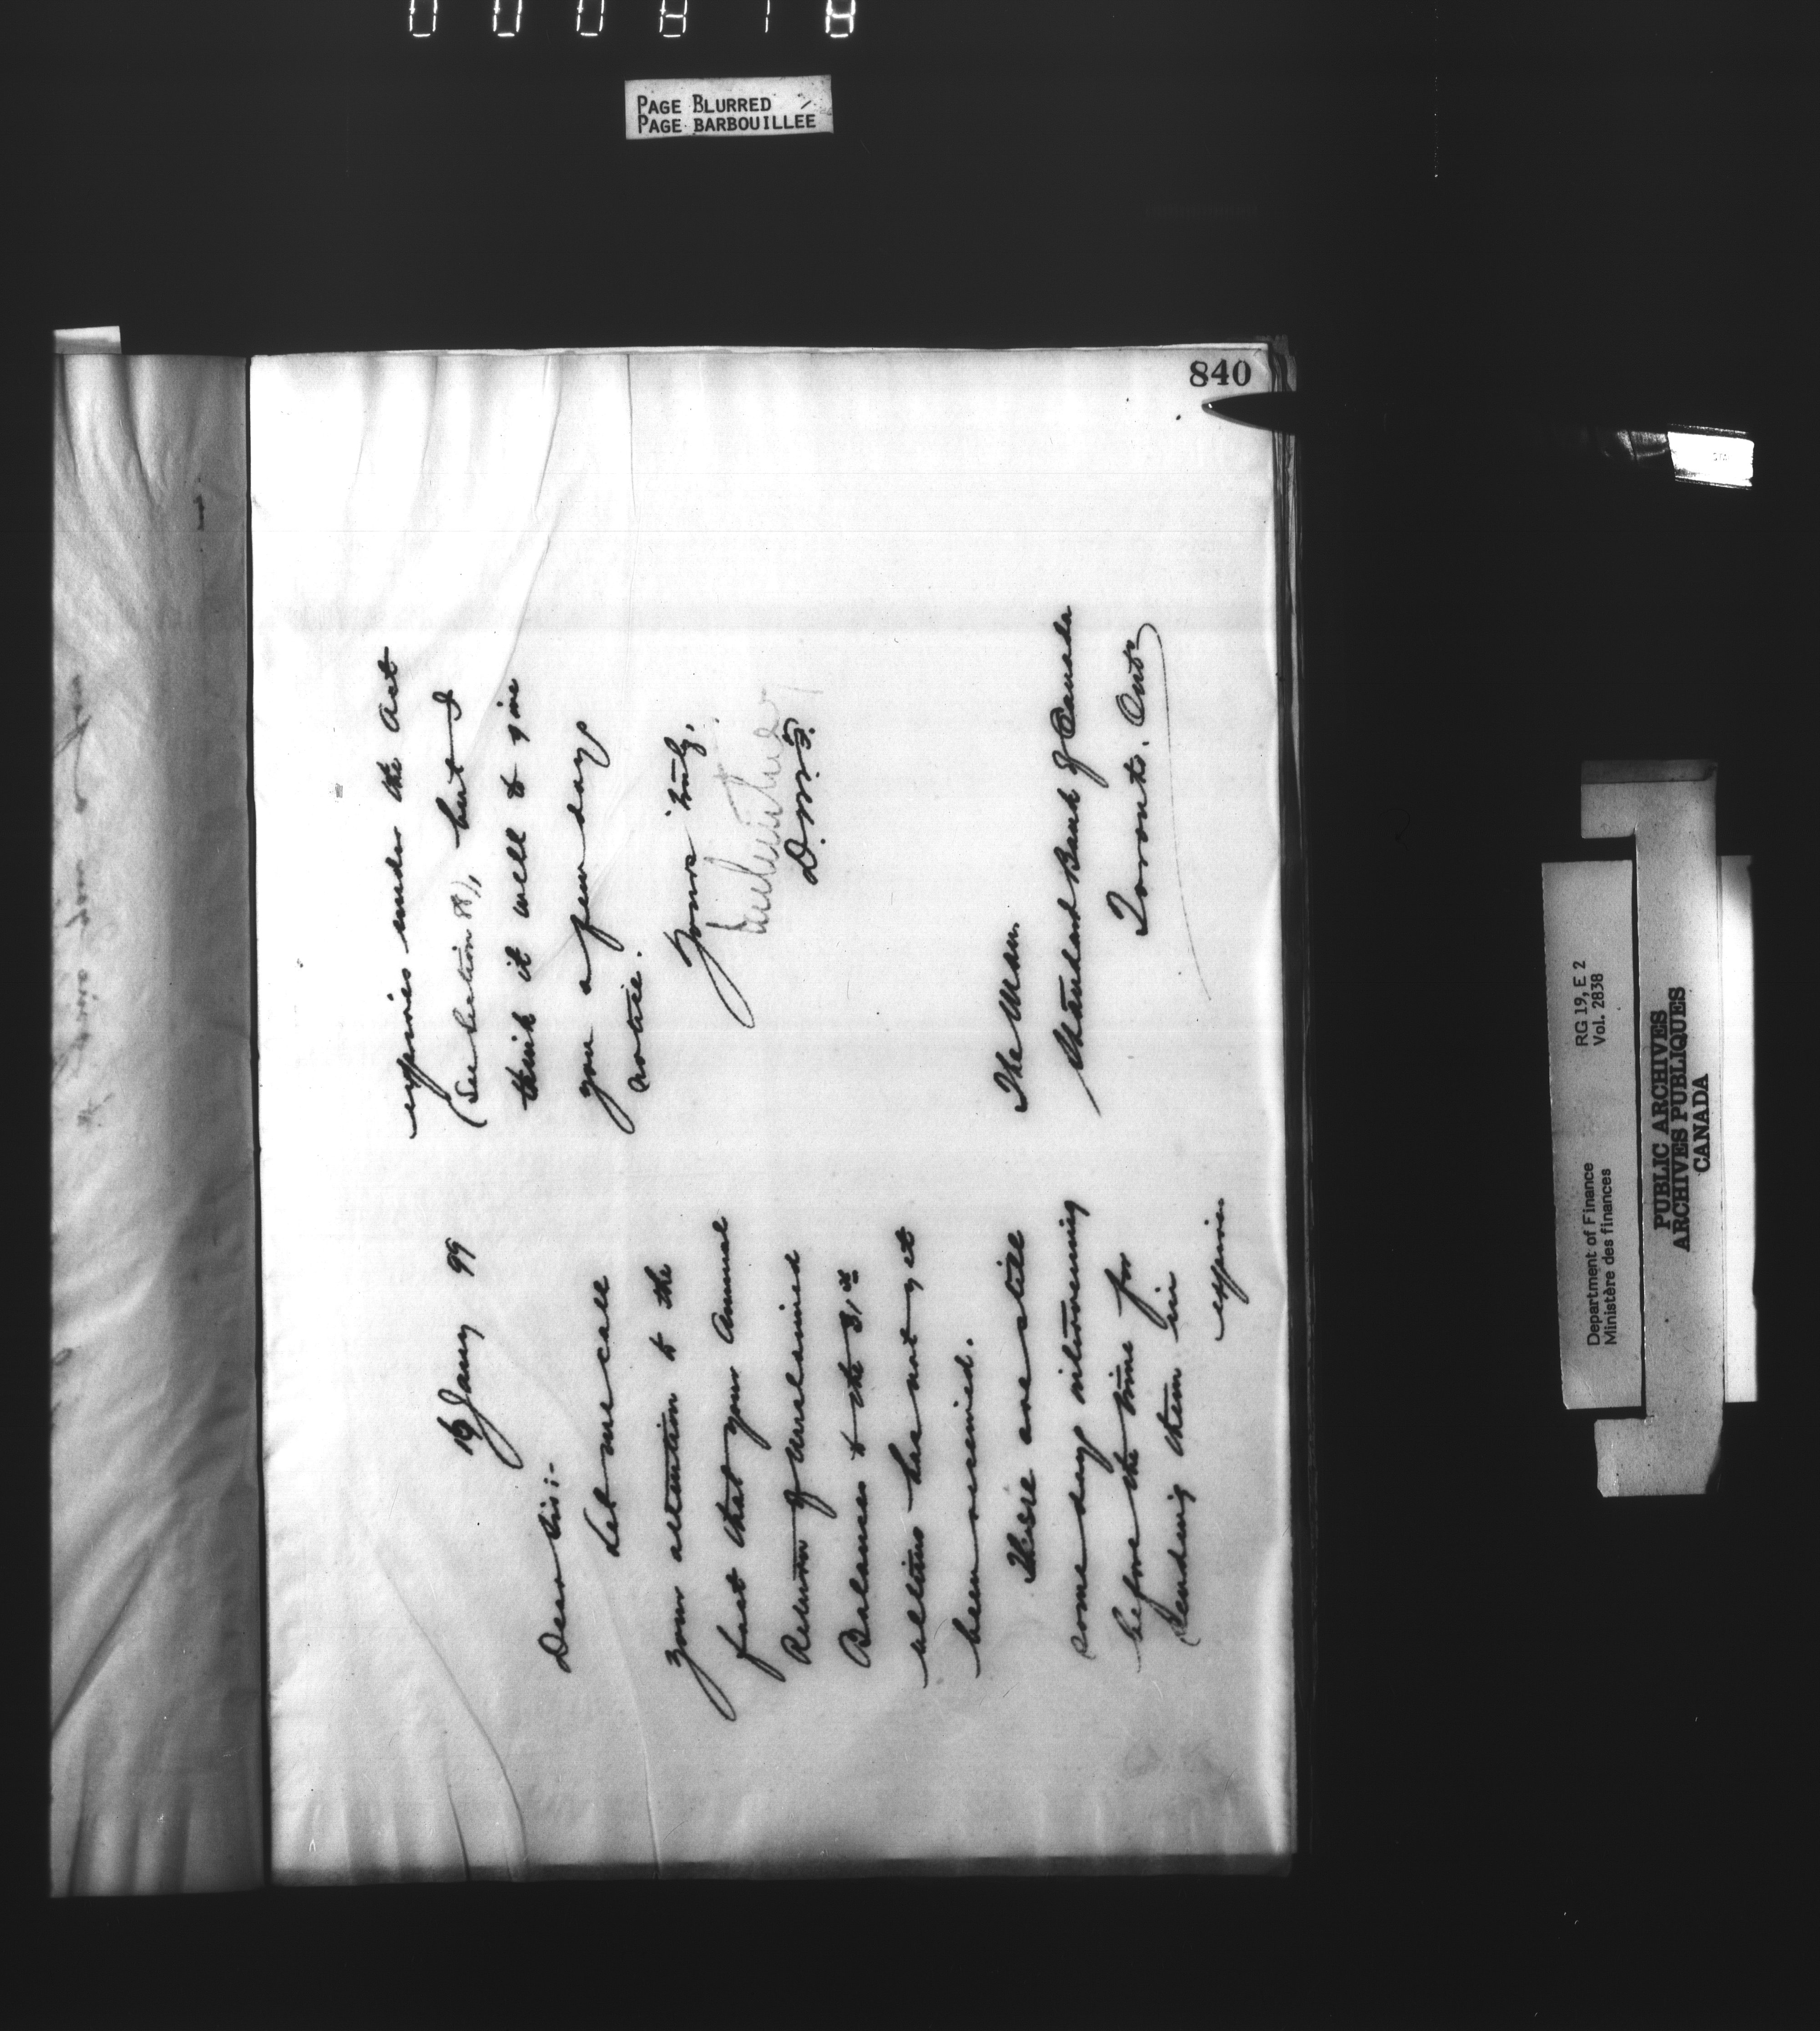 PAGE BLURRED
PAGE BARBOUILLEE
840
16 Jany 99
Dear Sir:-
Let me call
your attention to the
fact that your Annual
Return of Unclaimed
Balances to the 31st
ultimo has not yet
been received.
There are still
some days intervening
before the time for
sending them in
expires
expires under the Act
(See Section 88), but I
think it well to give
you a few days
notice.
Yours truly,
D.M.F.
The Man.
Standard Bank of Canada
Toronto. Ont
Department of Finance
Ministère des finances
RG 19, E 2
Vol. 2838
PUBLIC ARCHIVES
ARCHIVES PUBLIQUES
CANADA